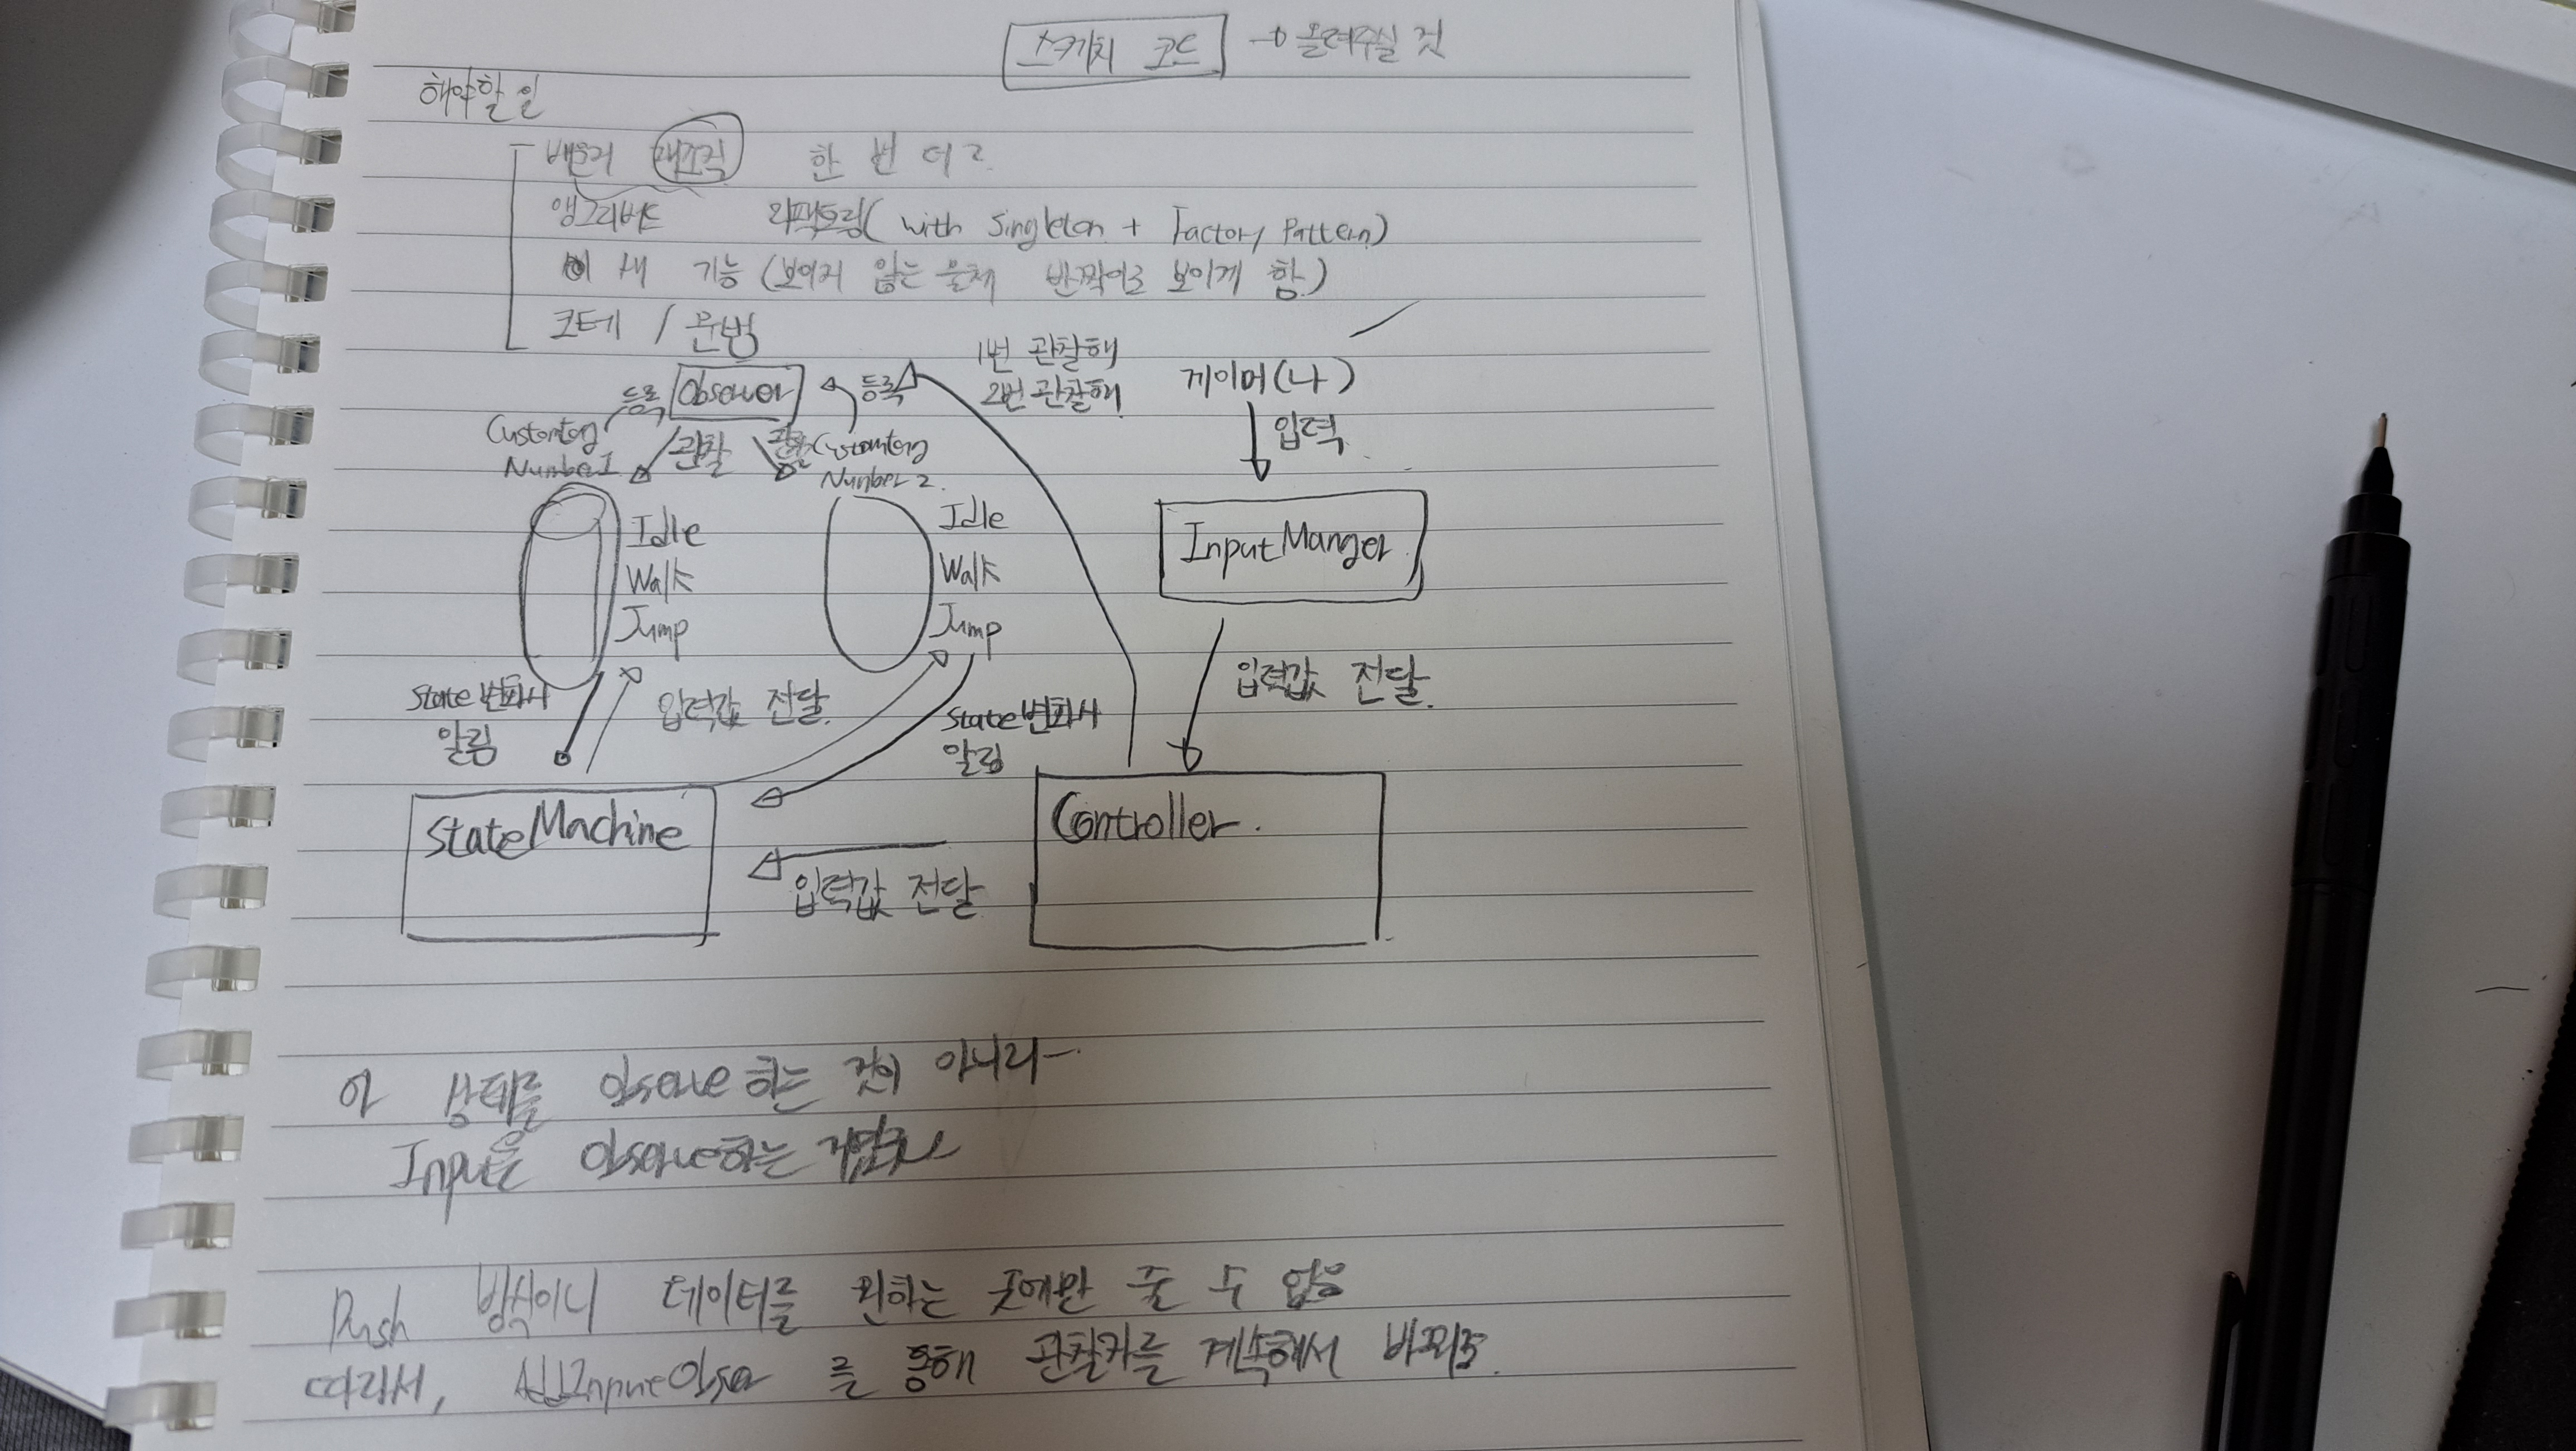 스케치 코드 → 올려주실 것
해야할 일
배운거 재조직 한 번 더
앵그리버드 리팩토링( with Singleton + Factory Pattern)
새 기능 (보이지 않는 물체 반짝이로 보이게 함)
코테 / 문법
1번 관찰해
2번 관찰해
등록 Observer 등록
게이머(나)
입력
관찰
Number 1
Number 2
Idle
Walk
Jump
Idle
Walk
Jump
InputManger
State 변화시
알림
입력값 전달
State 변화시
알림
입력값 전달
StateMachine
Controller
입력값 전달
아 상태를 observe 하는 것이 아니라
Input을 observe하는
Push 방식이니 데이터를 원하는 곳에만 줄 수 없음
따라서, 를 통해 관찰자를 계속해서 바꿔줌